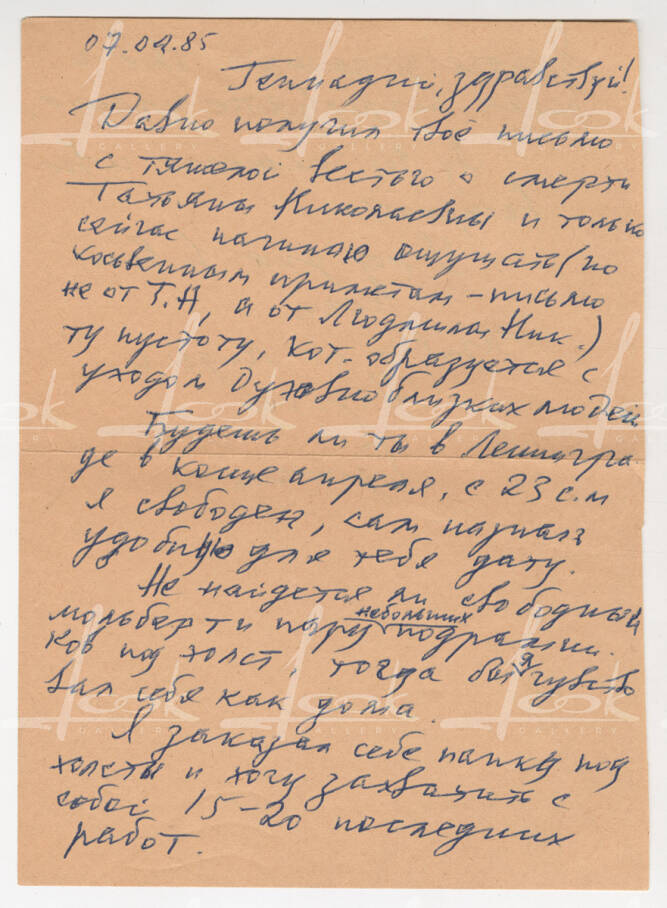 07.02.85
Геннадий, здравствуй!
Давно получил твоё письмо
с тяжелой вестью о смерти
Татьяны Николаевны и только
сейчас начинаю ощущать (по
косвенным приметам - письмо
не от Т.Н, а от Людмилы Ник.)
ту пустоту, кот. образуется с
уходом духовно близких людей
Будешь ли ты в Ленингра
де в конце апреля, с 23 с.м
я свободен, сам назначь
удобную для тебя дату.
Не найдется ли свободный
мольберт и пару небольших подрамни-
ков под холст, тогда бы я чувство
вал себя как дома.
Я заказал себе папку под
холсты и хочу захватить с
собой 15-20 последних
работ.
look
GALLERY